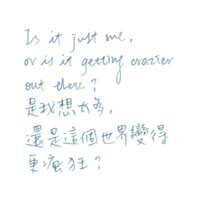 Is it just me,
or is it getting crazier
out there?
是我想太多,
還是這個世界變得
更瘋狂?